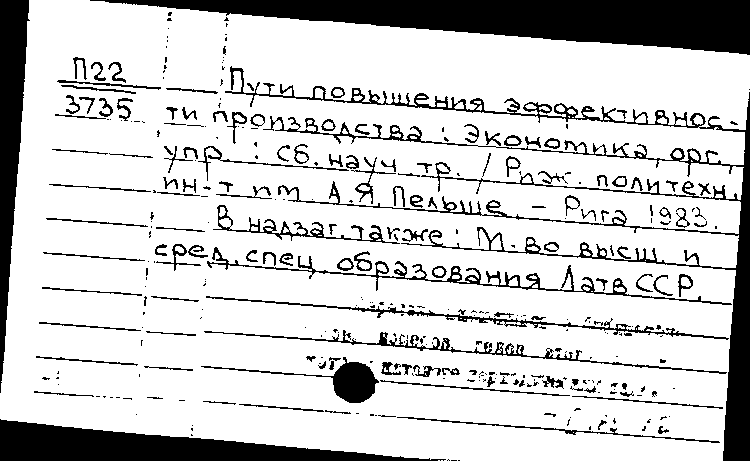 П22
3735
Пути повышения эффективнос-
ти производства : Экономика, орг.,
упр. : сб. науч. тр. / Риж. политехн.
ин-т им. А.Я. Пельше. – Рига, 1983.
В надзаг. также : М-во высш. и
сред. спец. образования ЛатвССР.